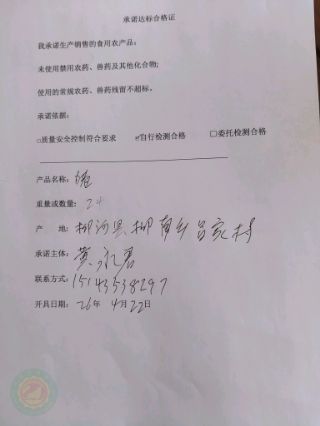 承诺达标合格证
我承诺生产销售的食用农产品:
未使用禁用农药、兽药及其他化合物;
使用的常规农药、兽药残留不超标。
承诺依据:
□质量安全控制符合要求 ☑自行检测合格 □委托检测合格
产品名称:
重量或数量: 24
产 地: 柳河县柳南乡吕家村
承诺主体: 黄永君
联系方式: 15143538297
开具日期: 26年 4月22日